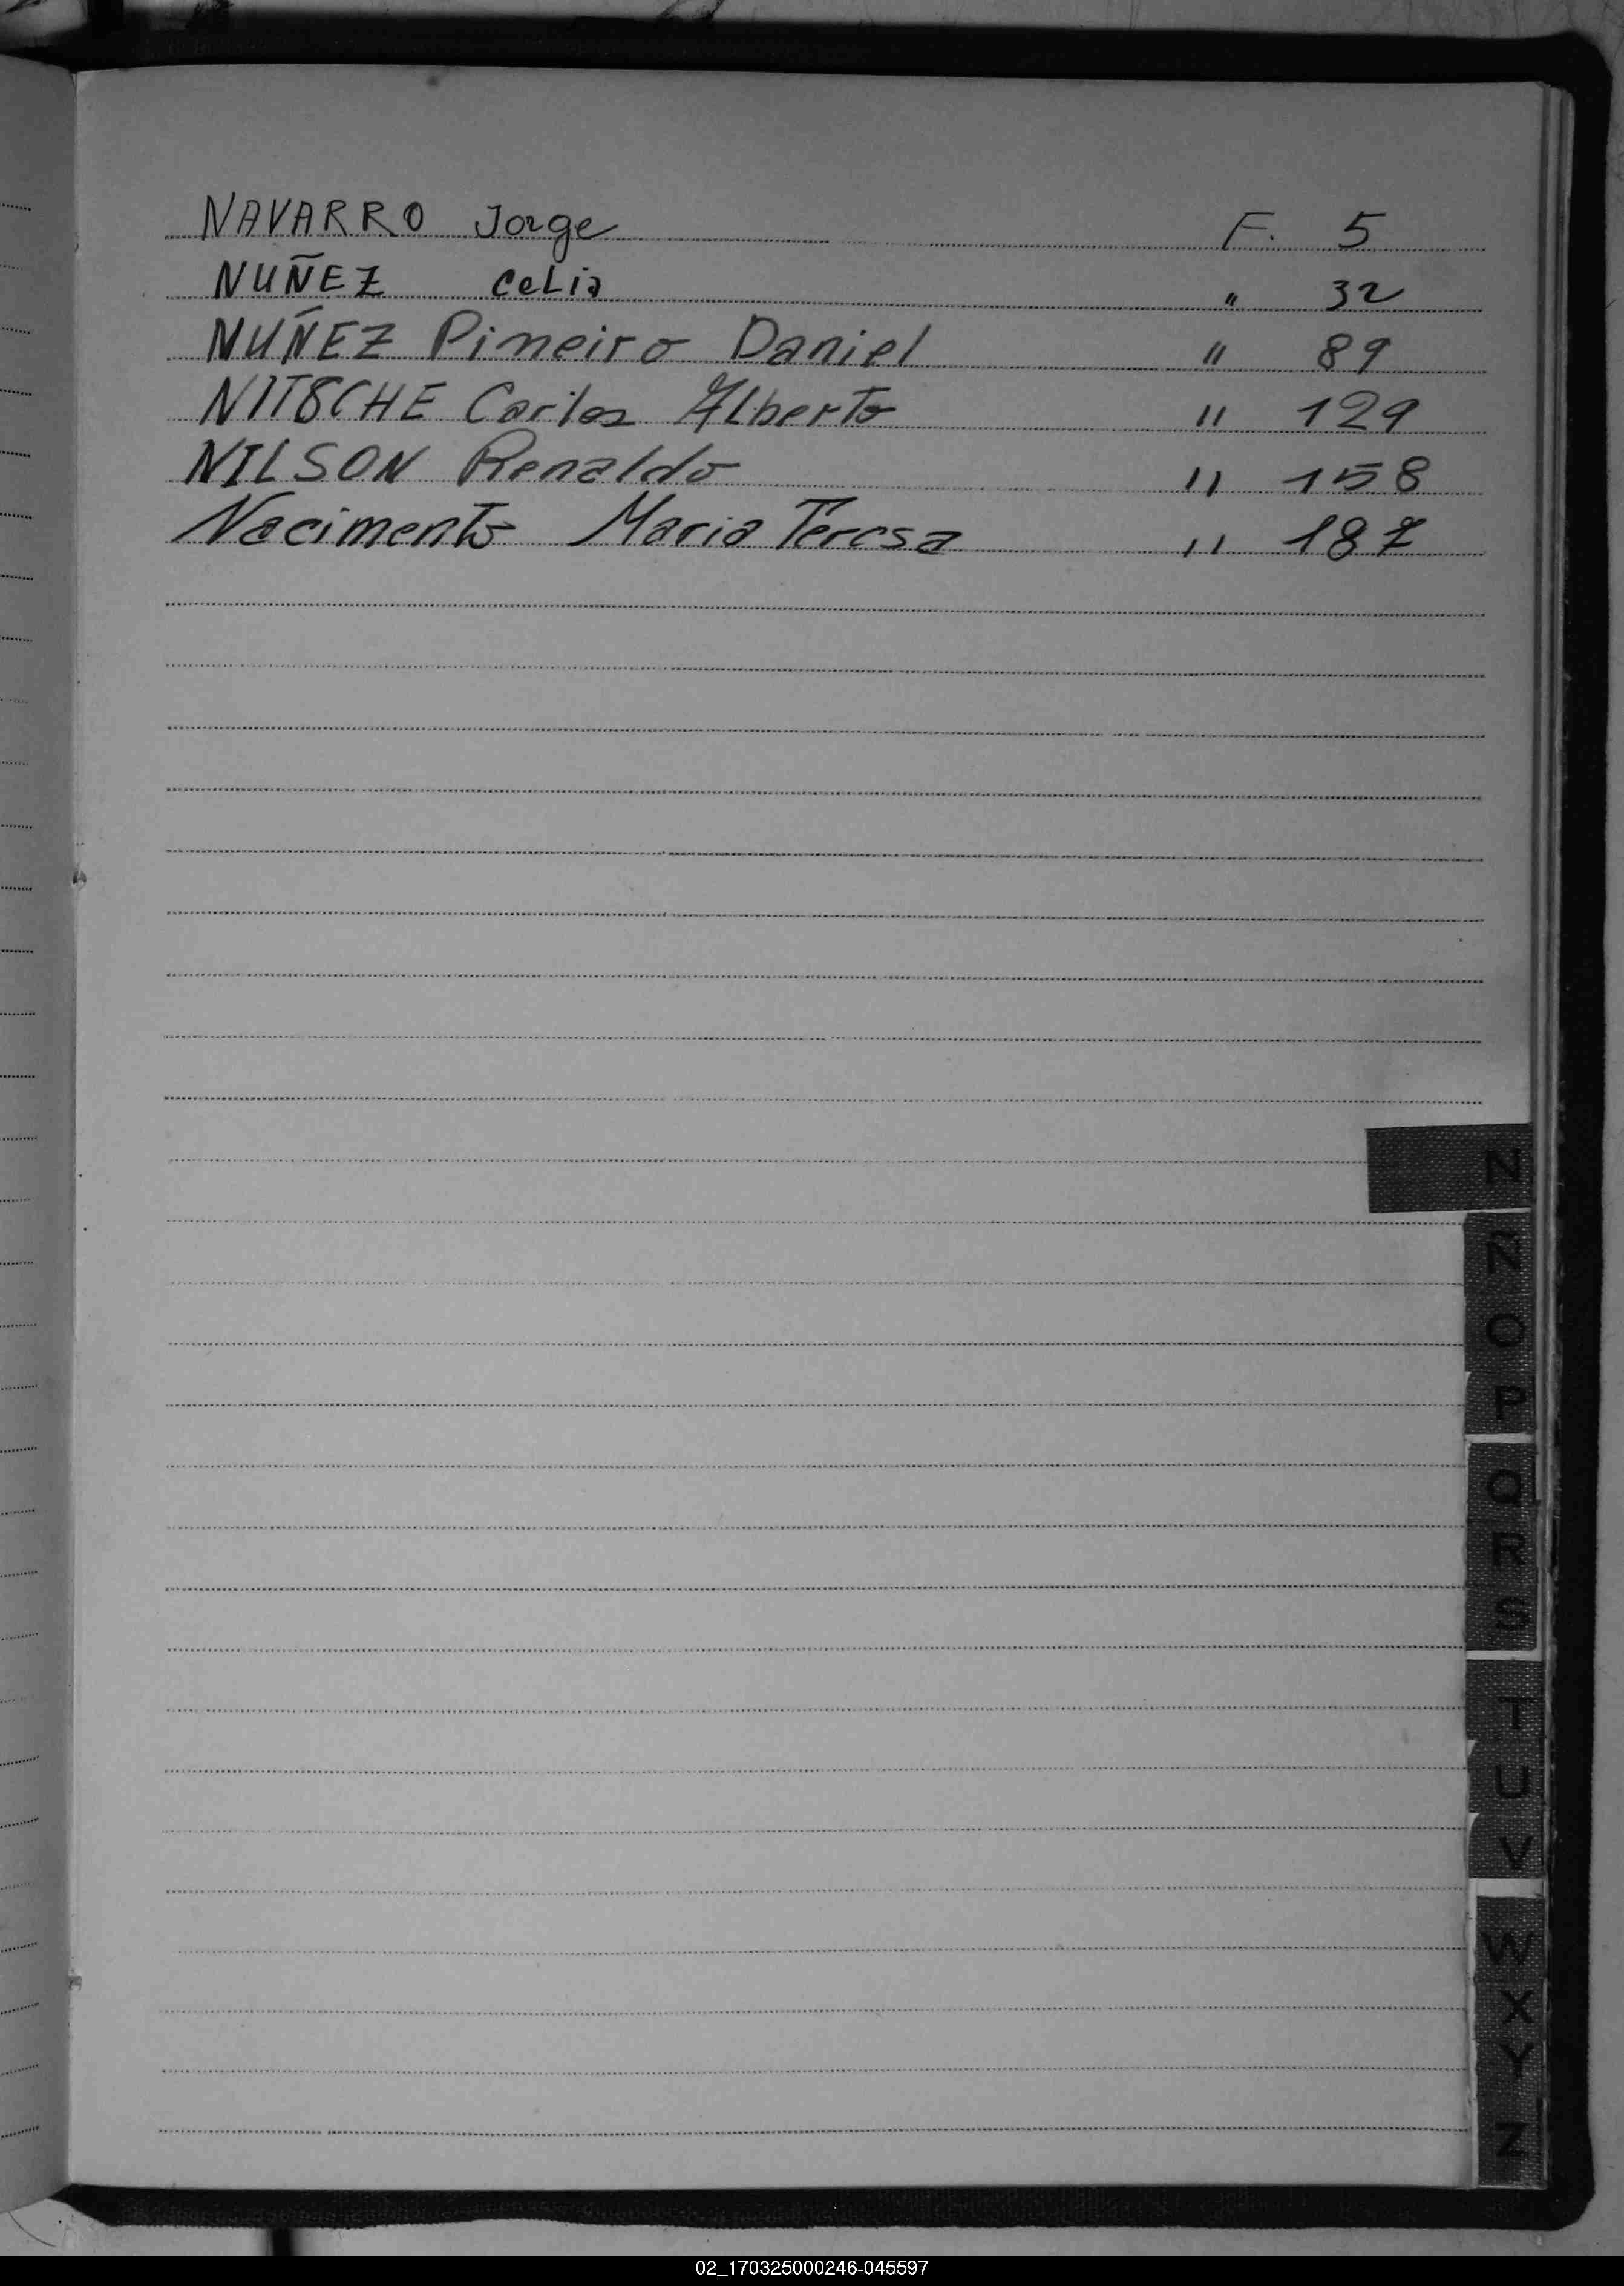 NAVARRO Jorge F. 5
NUÑEZ CeLia " 32
NUÑEZ Pimeiro Daniel " 89
NITSCHE Carlos ALberto " 129
NILSON Renaldo " 158
Nacimento Maria Teresa " 187
N
Ñ
O
P
Q
R
S
T
U
V
W
X
Y
Z
02_170325000246-045597